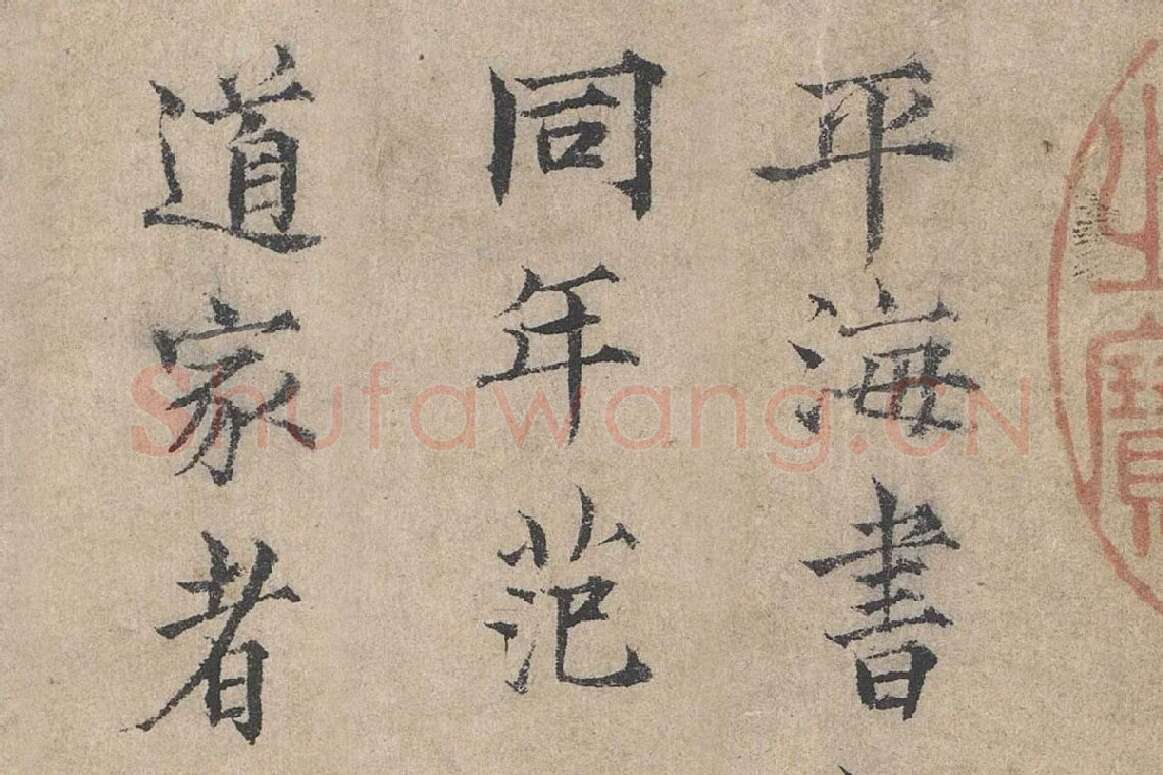 平海書
同年范
道家者
Shufawang.CN
之寶